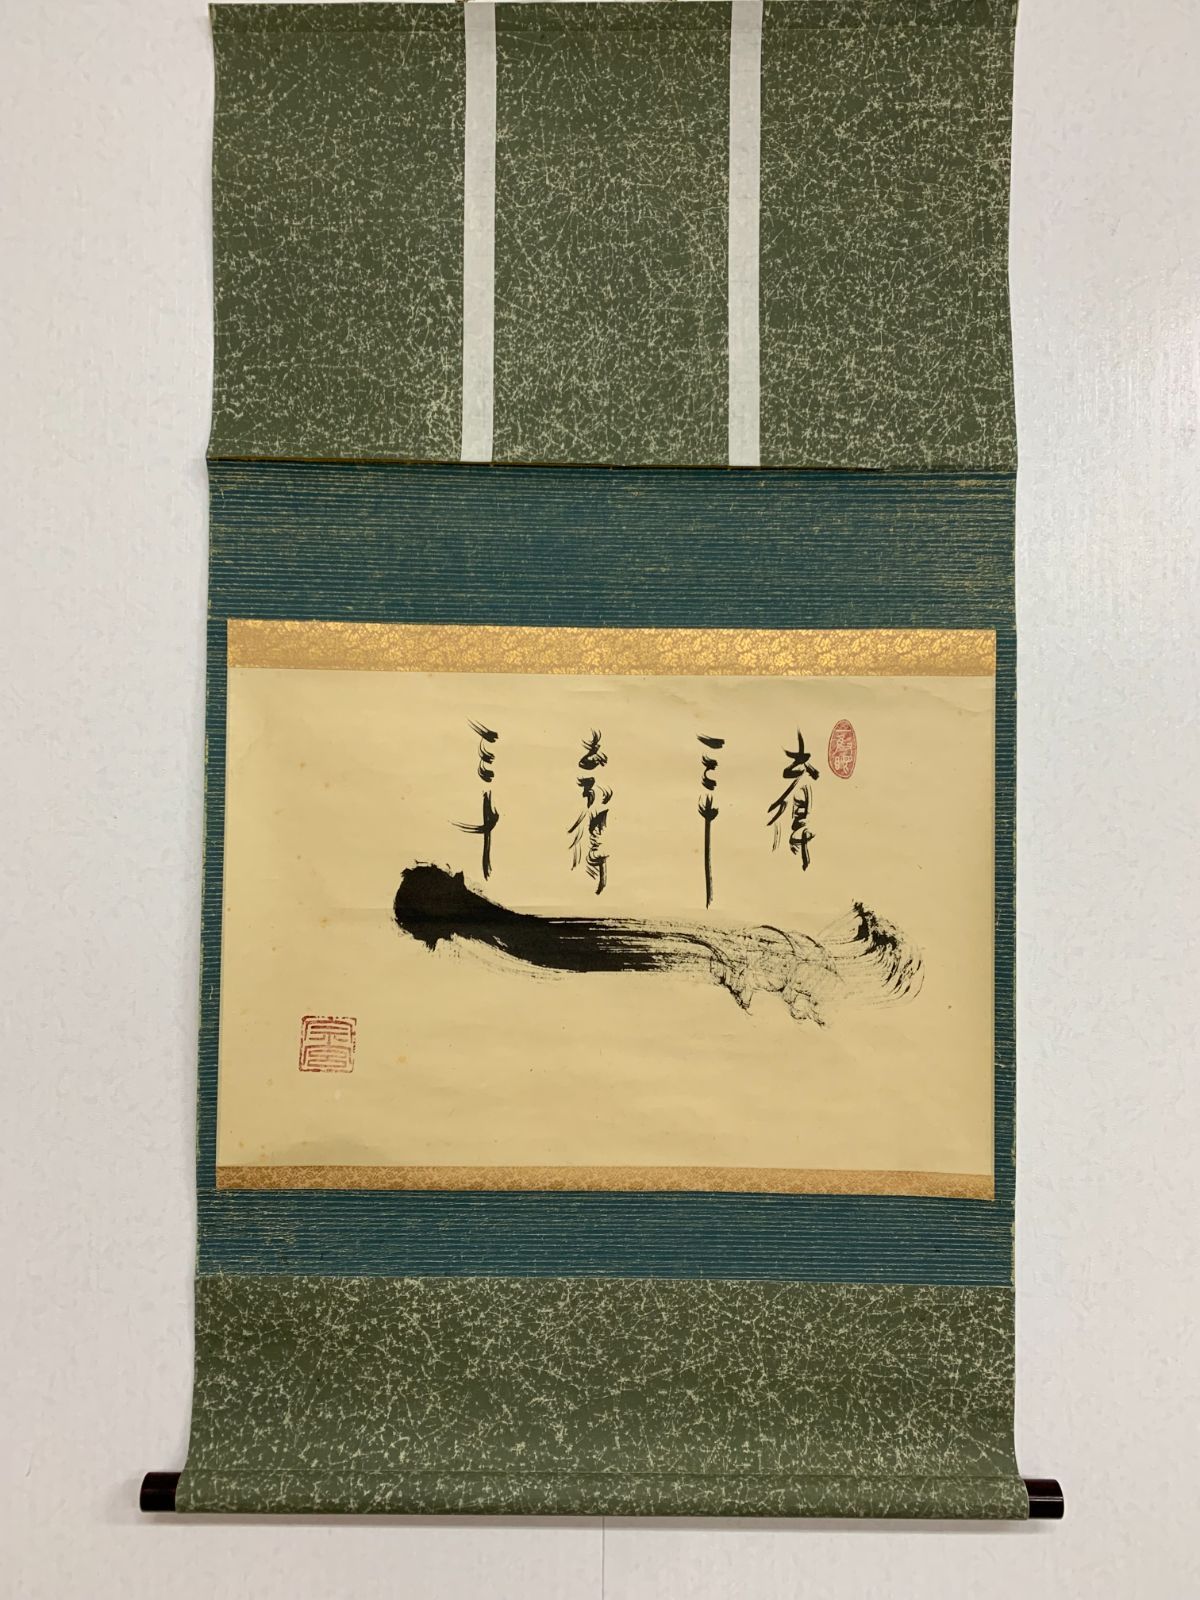 道得
三十
道不得
三十